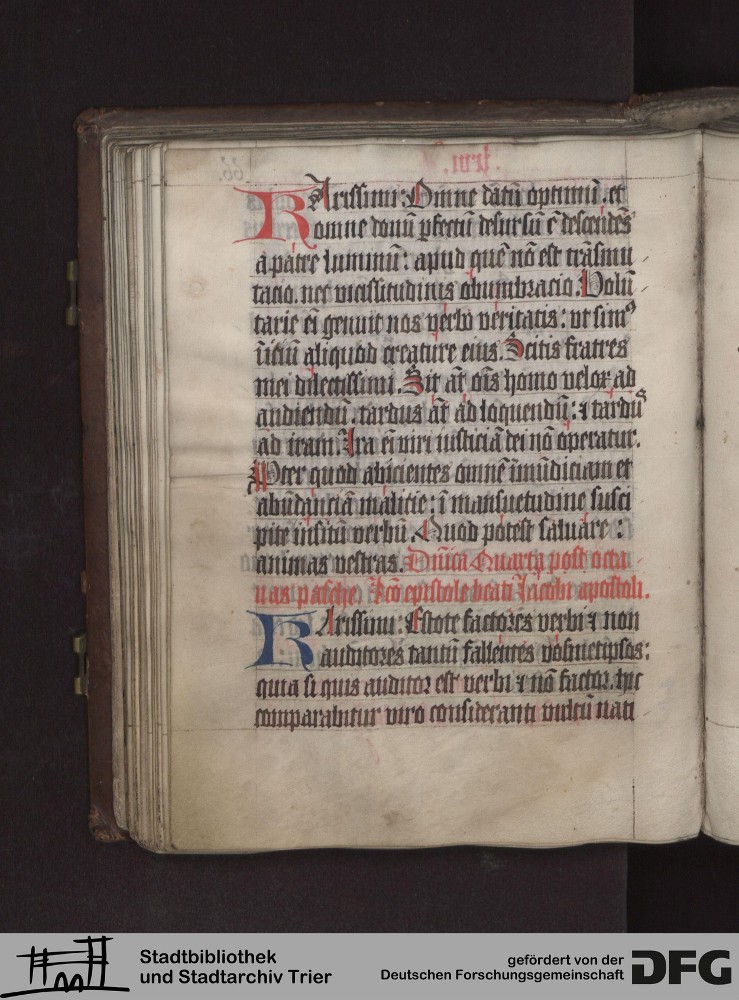 KArissimi: Omne datū optimū. et
omne donū ꝑfectū desursū ē descendēs
a patre luminū: apud quē nō est trāsmu
tacio. nec vicissitudinis obumbracio. Volū
tarie ei genuit nos verbo veritatis: vt simꝰ
īiciū aliquod creature eius. Scitis fratres
mei dilectissimi. Sit aūt oīs homo velox ad
audiendū. tardus aūt ad loquendū: ⁊ tardꝰ
ad iram. Ira ei viri iusticiā dei nō operatur.
Pter quod abicientes omnē īmūdiciam et
abūdanciā malicie: ī mansuetudine susci
pite insitū verbū. Quod potest saluare :
animas vestras. Dn̄ica Quarta post octa
uas pasche. Lcō epistole beati Jacobi apostoli.
KArissimi: Estote factores verbi ⁊ non
auditores tantū fallentes vosmetipsos:
quia si quis auditor est verbi ⁊ nō factor. hic
comparabitur viro consideranti vultū nati
Stadtbibliothek
und Stadtarchiv Trier
gefördert von der
Deutschen Forschungsgemeinschaft
DFG